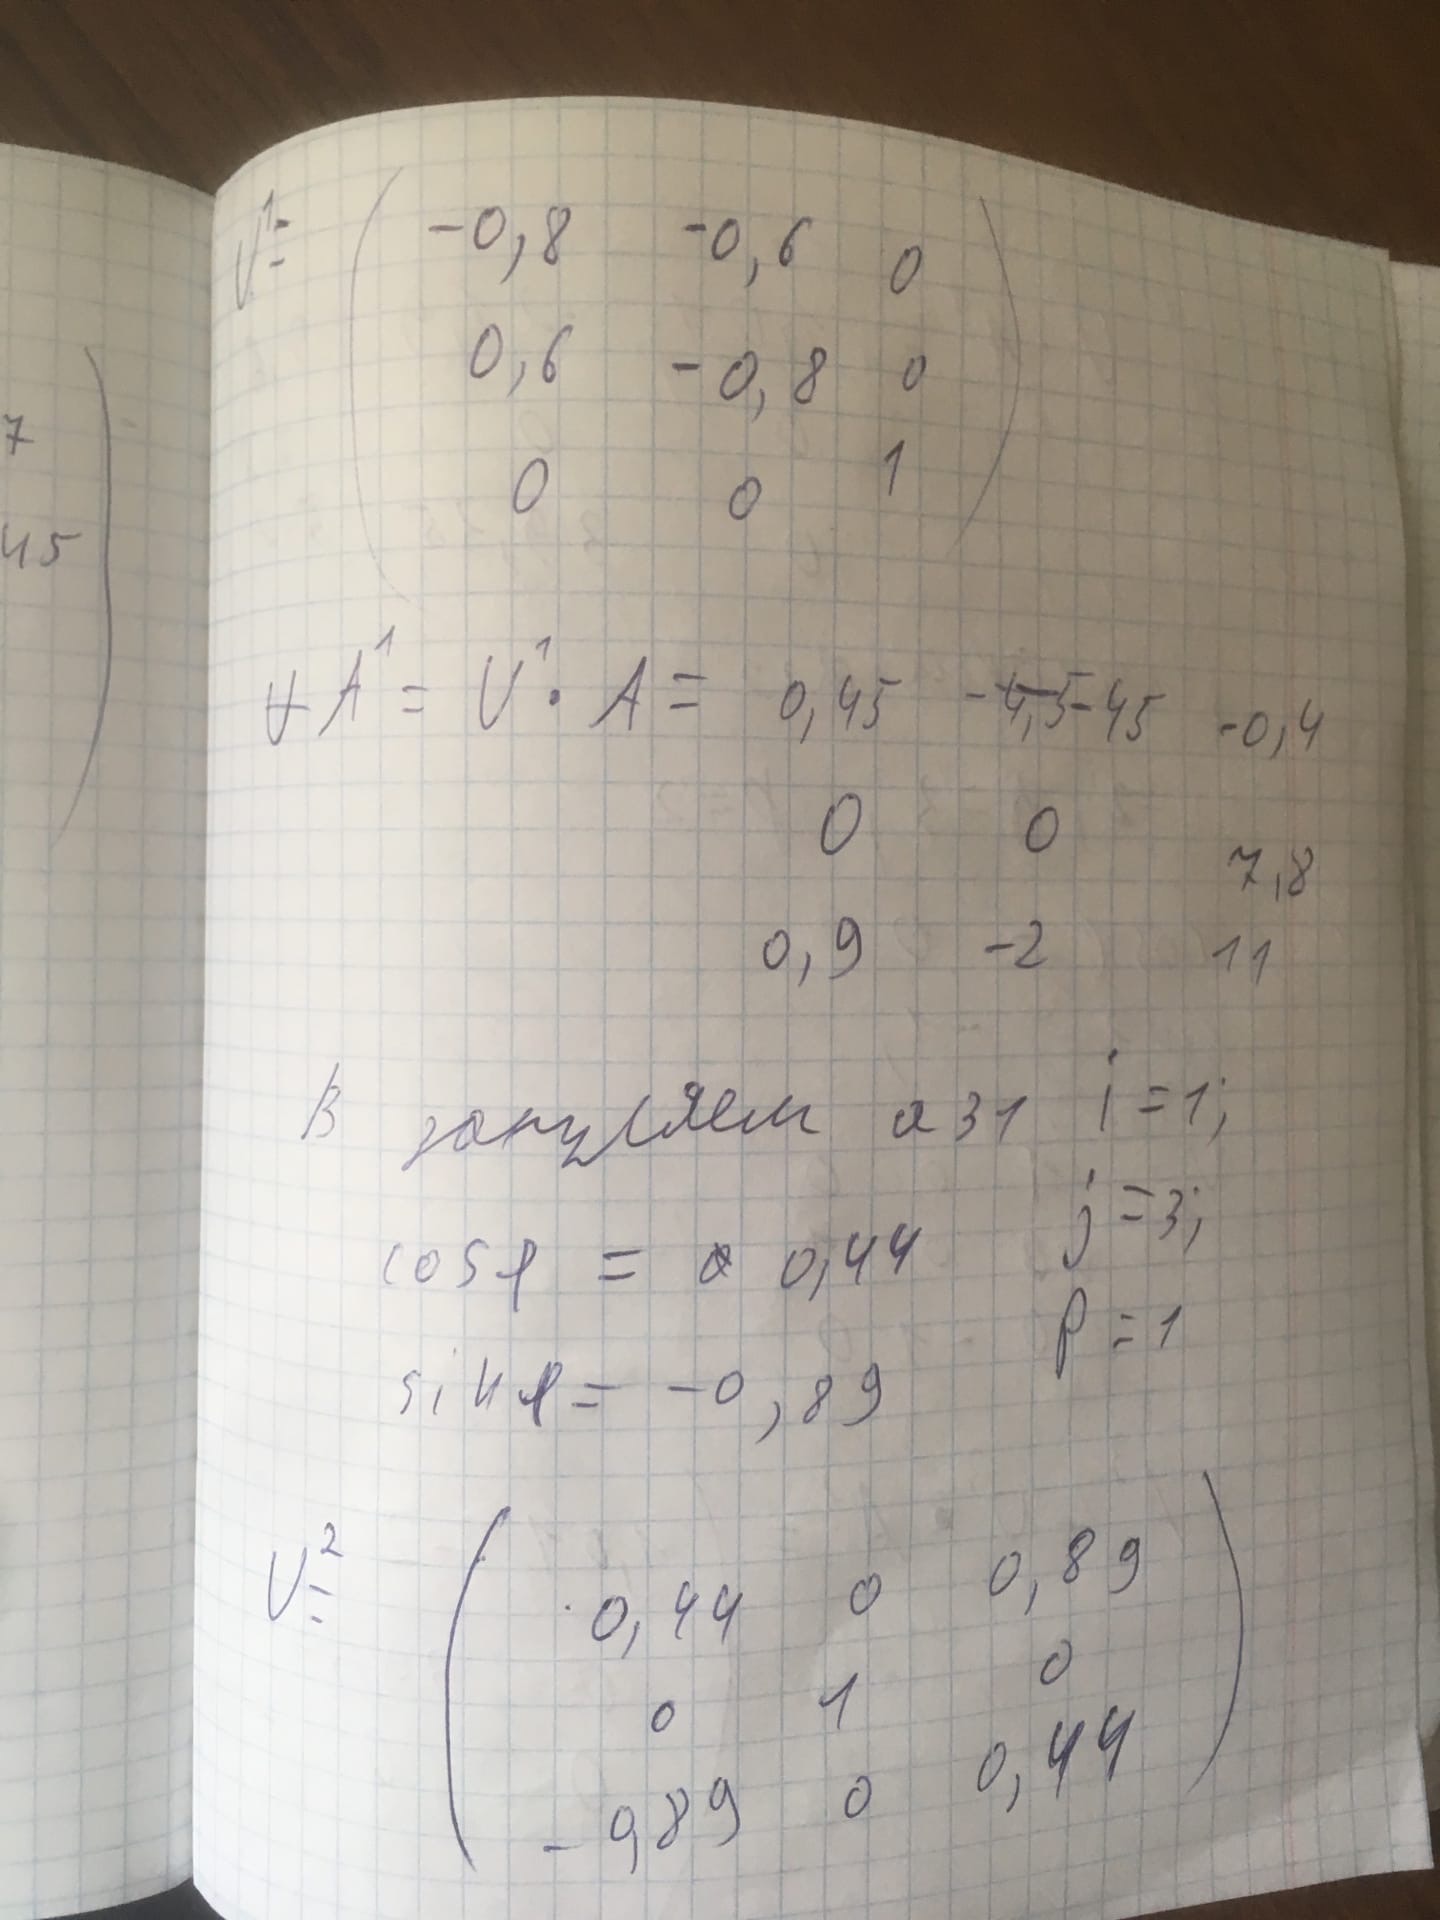 7
45
V¹= -0,8 -0,6 0
0,6 -0,8 0
0 0 1
A¹ = V¹ · A = 0,45 -45 -0,4
0 0 7,8
0,9 -2 11
В зануляем a31 i=1;
j=3;
cosφ = 0,44
p=1
sinφ= -0,89
V²= 0,44 0 0,89
0 1 0
-0,89 0 0,44